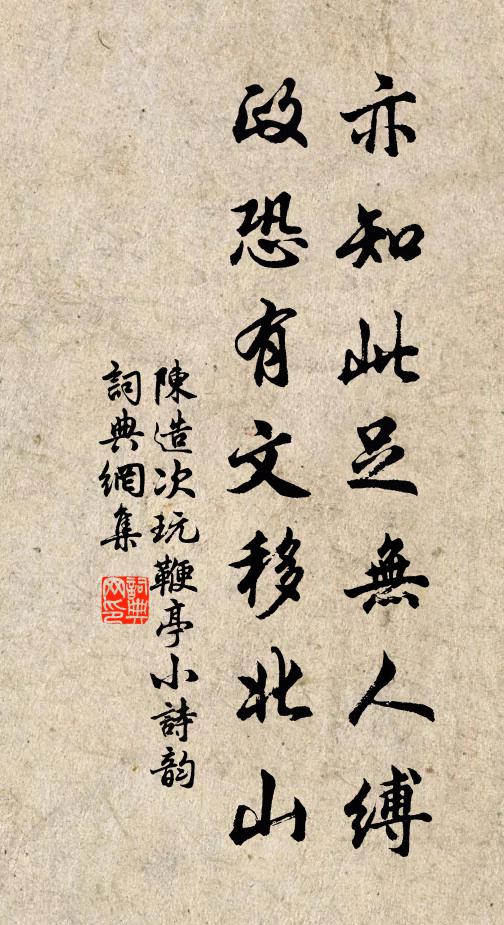 亦知此足無人縛
政恐有文移北山
陳造次玩鞭亭小詩韵
詞典網集
詞典網印